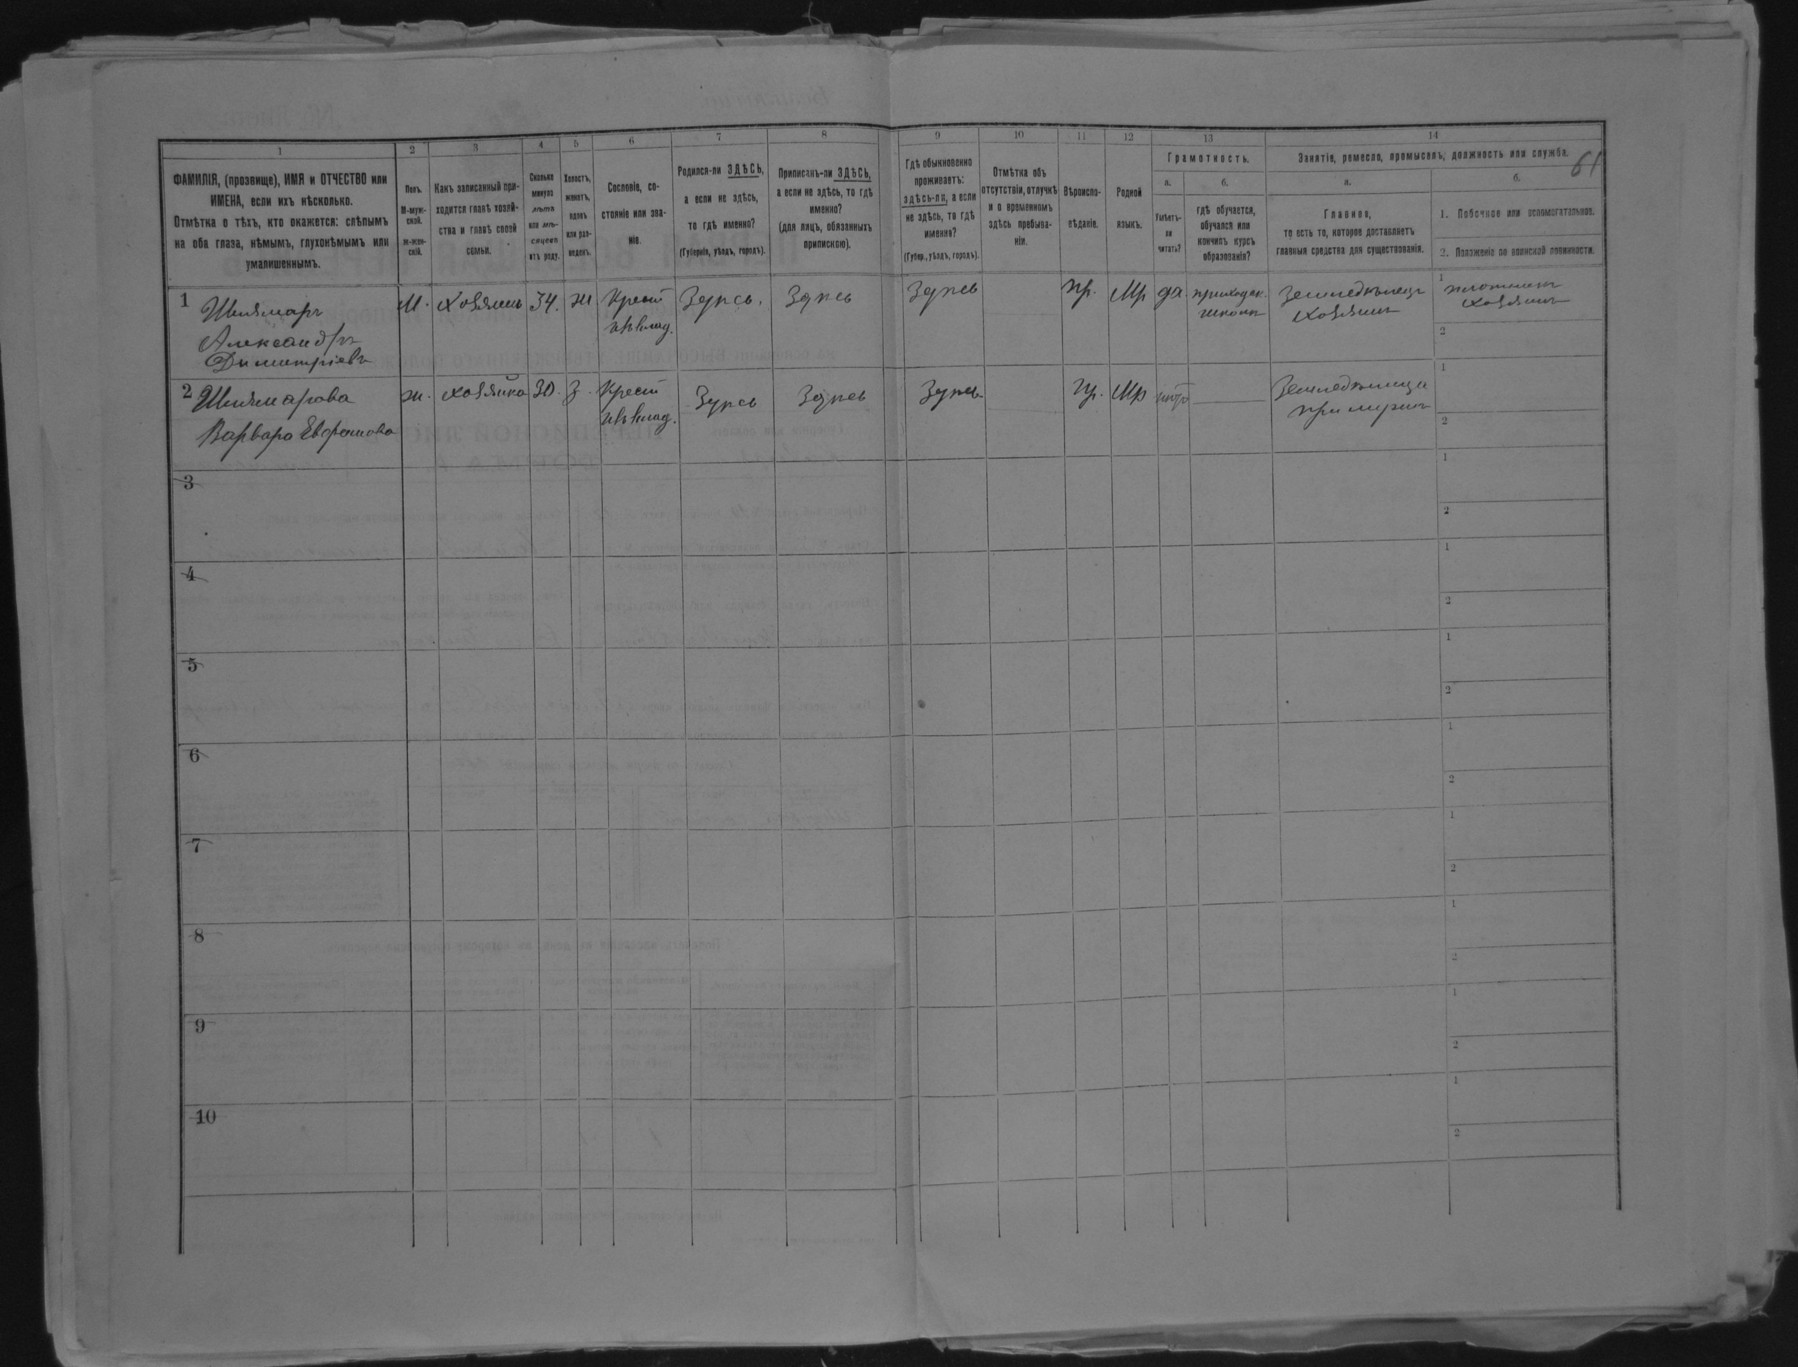 1 2 3 4 5 6 7 8 9 10 11 12 13 14
61
ФАМИЛІЯ, (прозвище), ИМЯ и ОТЧЕСТВО или
ИМЕНА, если ихъ нѣсколько.
Отмѣтка о тѣхъ, кто окажется: слѣпымъ
на оба глаза, нѣмымъ, глухонѣмымъ или
умалишеннымъ.
Полъ.
М-муж-
ской.
ж-жен-
скій.
Какъ записанный при-
ходится главѣ хозяй-
ства и главѣ своей
семьи.
Сколько
минуло
лѣтъ
или мѣ-
сяцевъ
отъ роду.
Холостъ,
женатъ,
вдовъ
или раз-
веденъ.
Сословіе, со-
стояніе или зва-
ніе.
Родился-ли ЗДѢСЬ,
а если не здѣсь,
то гдѣ именно?
(Губернія, уѣздъ, городъ).
Приписанъ-ли ЗДѢСЬ,
а если не здѣсь, то гдѣ
именно?
(для лицъ, обязанныхъ
припискою).
Гдѣ обыкновенно
проживаетъ:
здѣсь-ли, а если
не здѣсь, то гдѣ
именно?
(Губер., уѣздъ, городъ).
Отмѣтка объ
отсутствіи, отлучкѣ
и о временномъ
здѣсь пребыва-
ніи.
Вѣроиспо-
вѣданіе.
Родной
языкъ.
Грамотность.
а.
Умѣетъ-
ли
читать?
б.
гдѣ обучается,
обучался или
кончилъ курсъ
образованія?
Занятіе, ремесло, промыселъ, должность или служба.
а.
Главное,
то есть то, которое доставляетъ
главныя средства для существованія.
б.
1. Побочное или вспомогательное.
2. Положеніе по воинской повинности.
1 Шлямаръ
Александръ
Димитріевъ
м. хозяинъ 34. ж Крест Здѣсь. Здѣсь Здѣсь пр. Мр да. приходск. Земледѣлецъ
школа хозяинъ
1
хозяинъ
2
2 Шлямарова
Варвара
ж. хозяйка 30. з. Крест Здѣсь Здѣсь Здѣсь пр. Мр нѣтъ Земледѣлица
при мужѣ
1
2
3
1
2
4
1
2
5
1
2
6
1
2
7
1
2
8
1
2
9
1
2
10
1
2